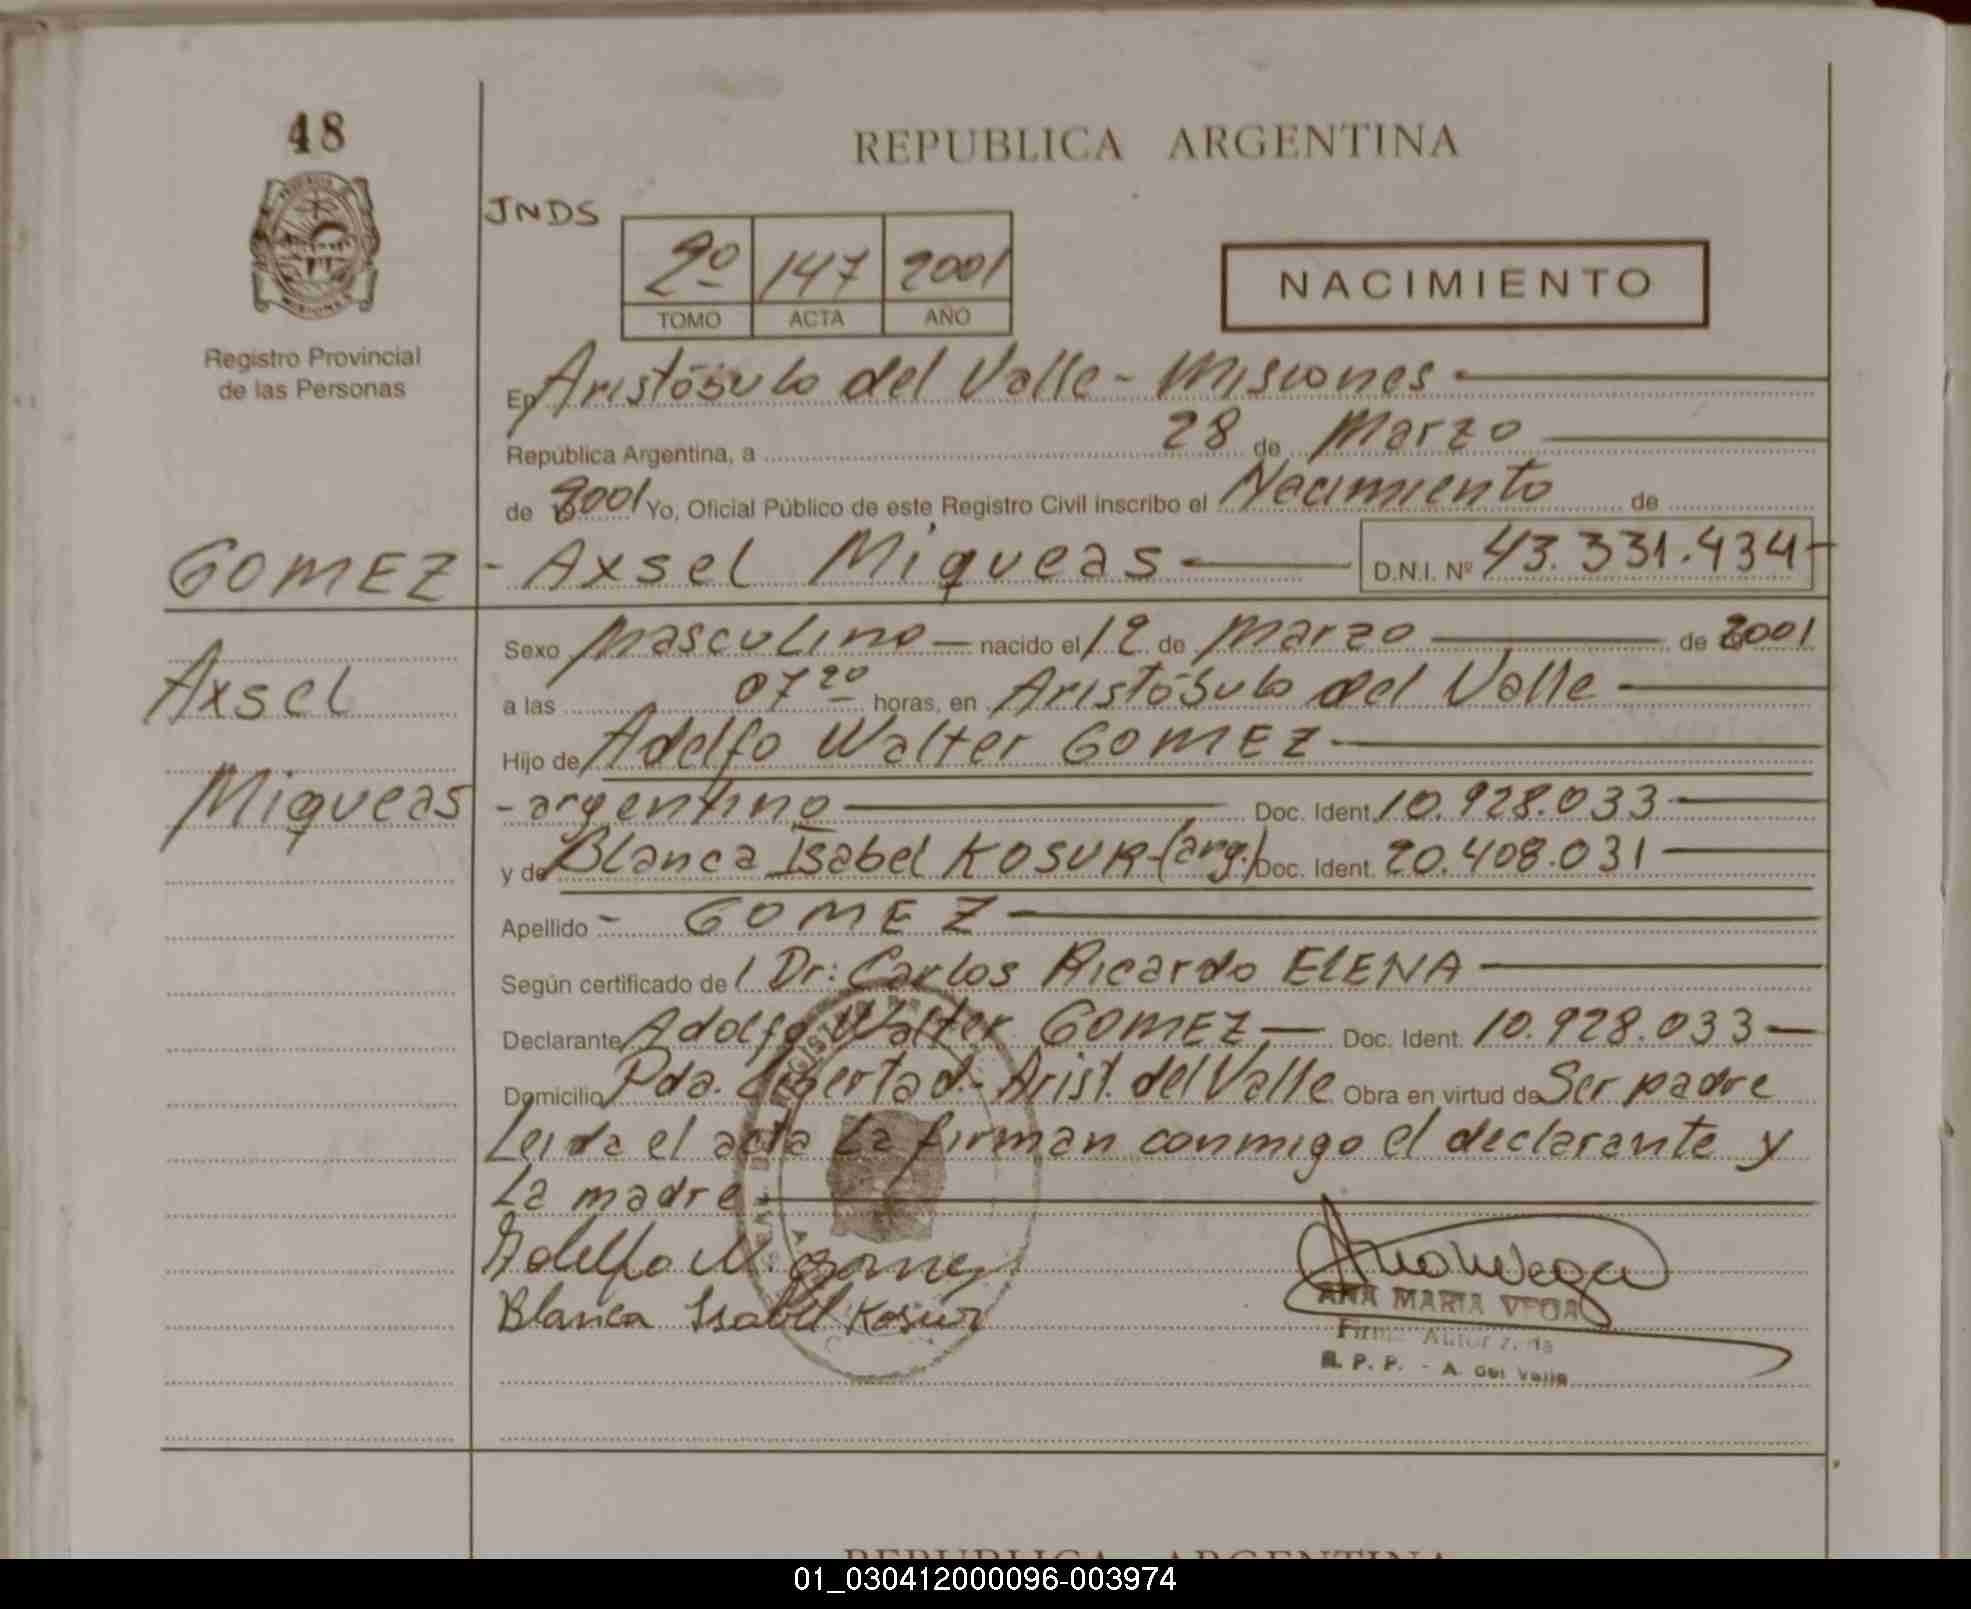 48
REPUBLICA ARGENTINA
JNDS
2º 147 2001
TOMO ACTA AÑO
NACIMIENTO
Registro Provincial
de las Personas
En Aristóbulo del Valle - Misiones
República Argentina, a 28 de Marzo
de 2001 Yo, Oficial Público de este Registro Civil inscribo el Nacimiento de
GOMEZ - Axsel Miqueas D.N.I. Nº 43.331.434
Sexo Masculino nacido el 12 de Marzo de 2001
Axsel
a las 07 20 horas, en Aristóbulo del Valle
Hijo de Adelfo Walter GOMEZ
Miqueas
- argentino Doc. Ident. 10.928.033
y de Blanca Isabel KOSUR (arg.) Doc. Ident. 20.408.031
Apellido - GOMEZ
Según certificado de l Dr: Carlos Ricardo ELENA
Declarante Adolfo Walter GOMEZ Doc. Ident. 10.928.033
Domicilio Pda. Libertad - Arist. del Valle Obra en virtud de Ser padre
Leida el acta la firman conmigo el declarante y
la madre
Adelfo W. Gomez
Blanca Isabel Kosur
ANA MARIA VEGA
Firma Autorizada
R. P. P. - A. del Valle
REPUBLICA ARGENTINA
01_030412000096-003974